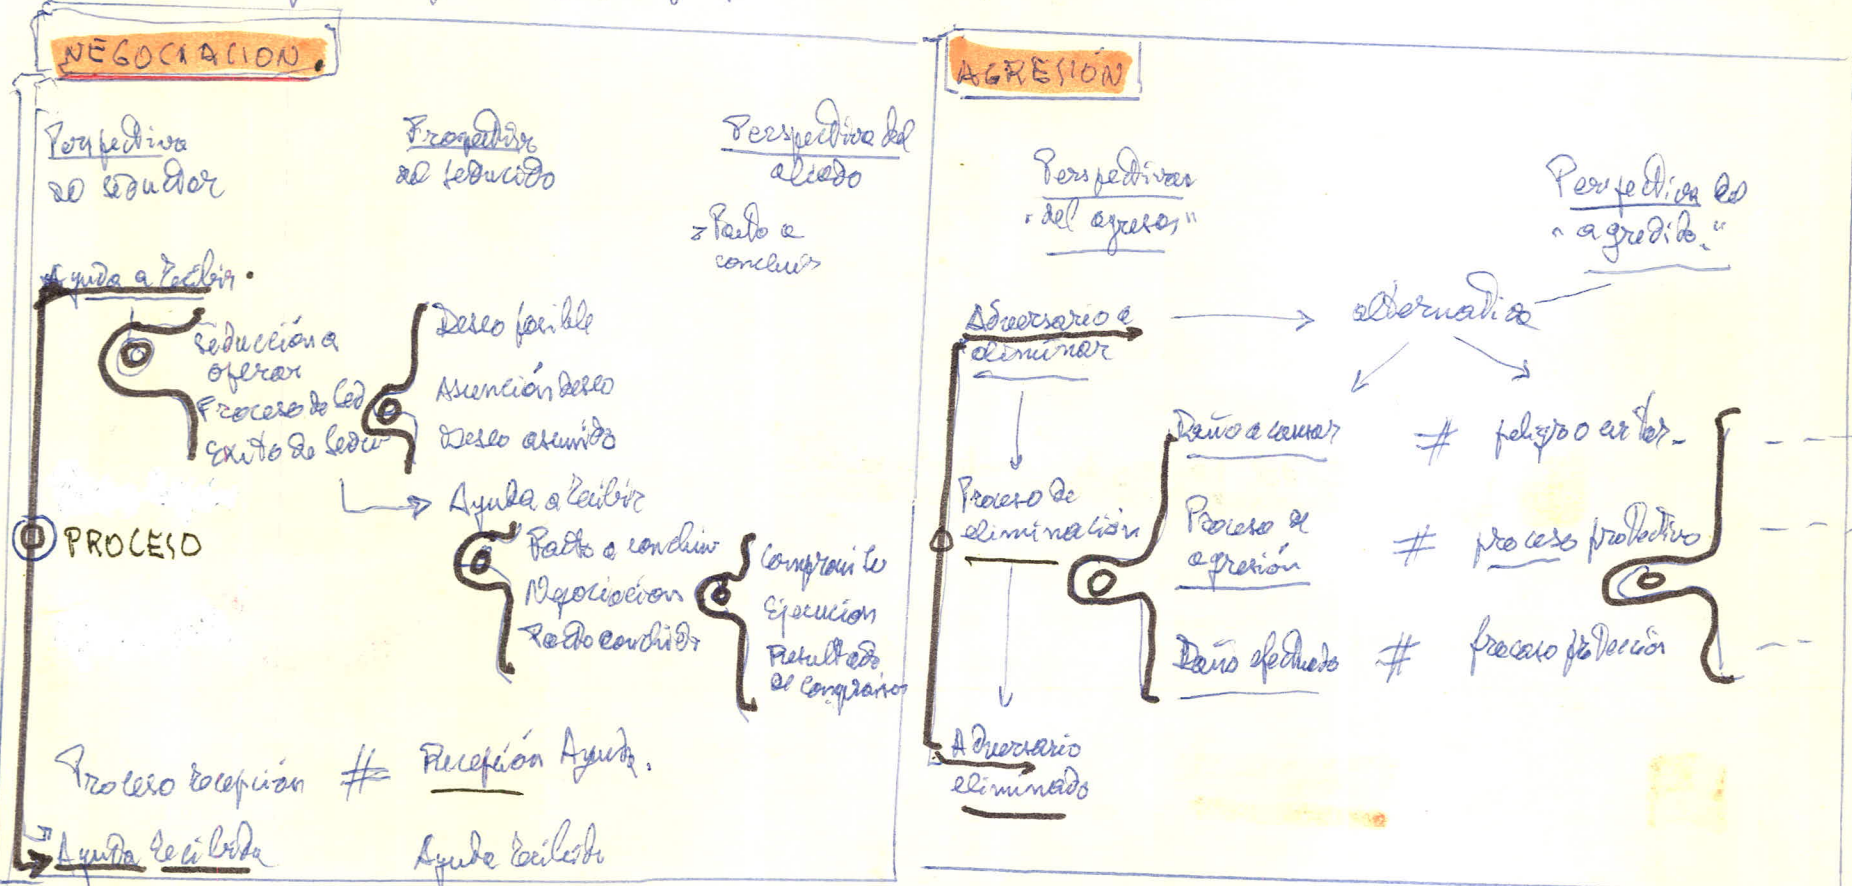 NEGOCIACION.
Perspectiva
del seductor
Perspectiva
del seducido
Perspectiva del
aliado
Pacto a
concluir
Ayuda a recibir.
Seducción a
operar
Proceso de Sed
Exito de Seduc
Deseo posible
Asunción deseo
Deseo asumido
Ayuda a recibir
PROCESO
Pacto a concluir
Negociación
Pacto concluido
Compromiso
Ejecución
Resultado
de compromiso
Proceso recepción # Recepción Ayuda.
Ayuda recibida
Ayuda recibida
AGRESIÓN
Perspectiva
"del agresor"
Perspectiva del
"agredido."
Adversario a
eliminar
alternativa
Daño a causar # peligro evitar
Proceso de
eliminación
Proceso de
agresión
# proceso protectivo
Daño efectuado # fracaso protección
Adversario
eliminado